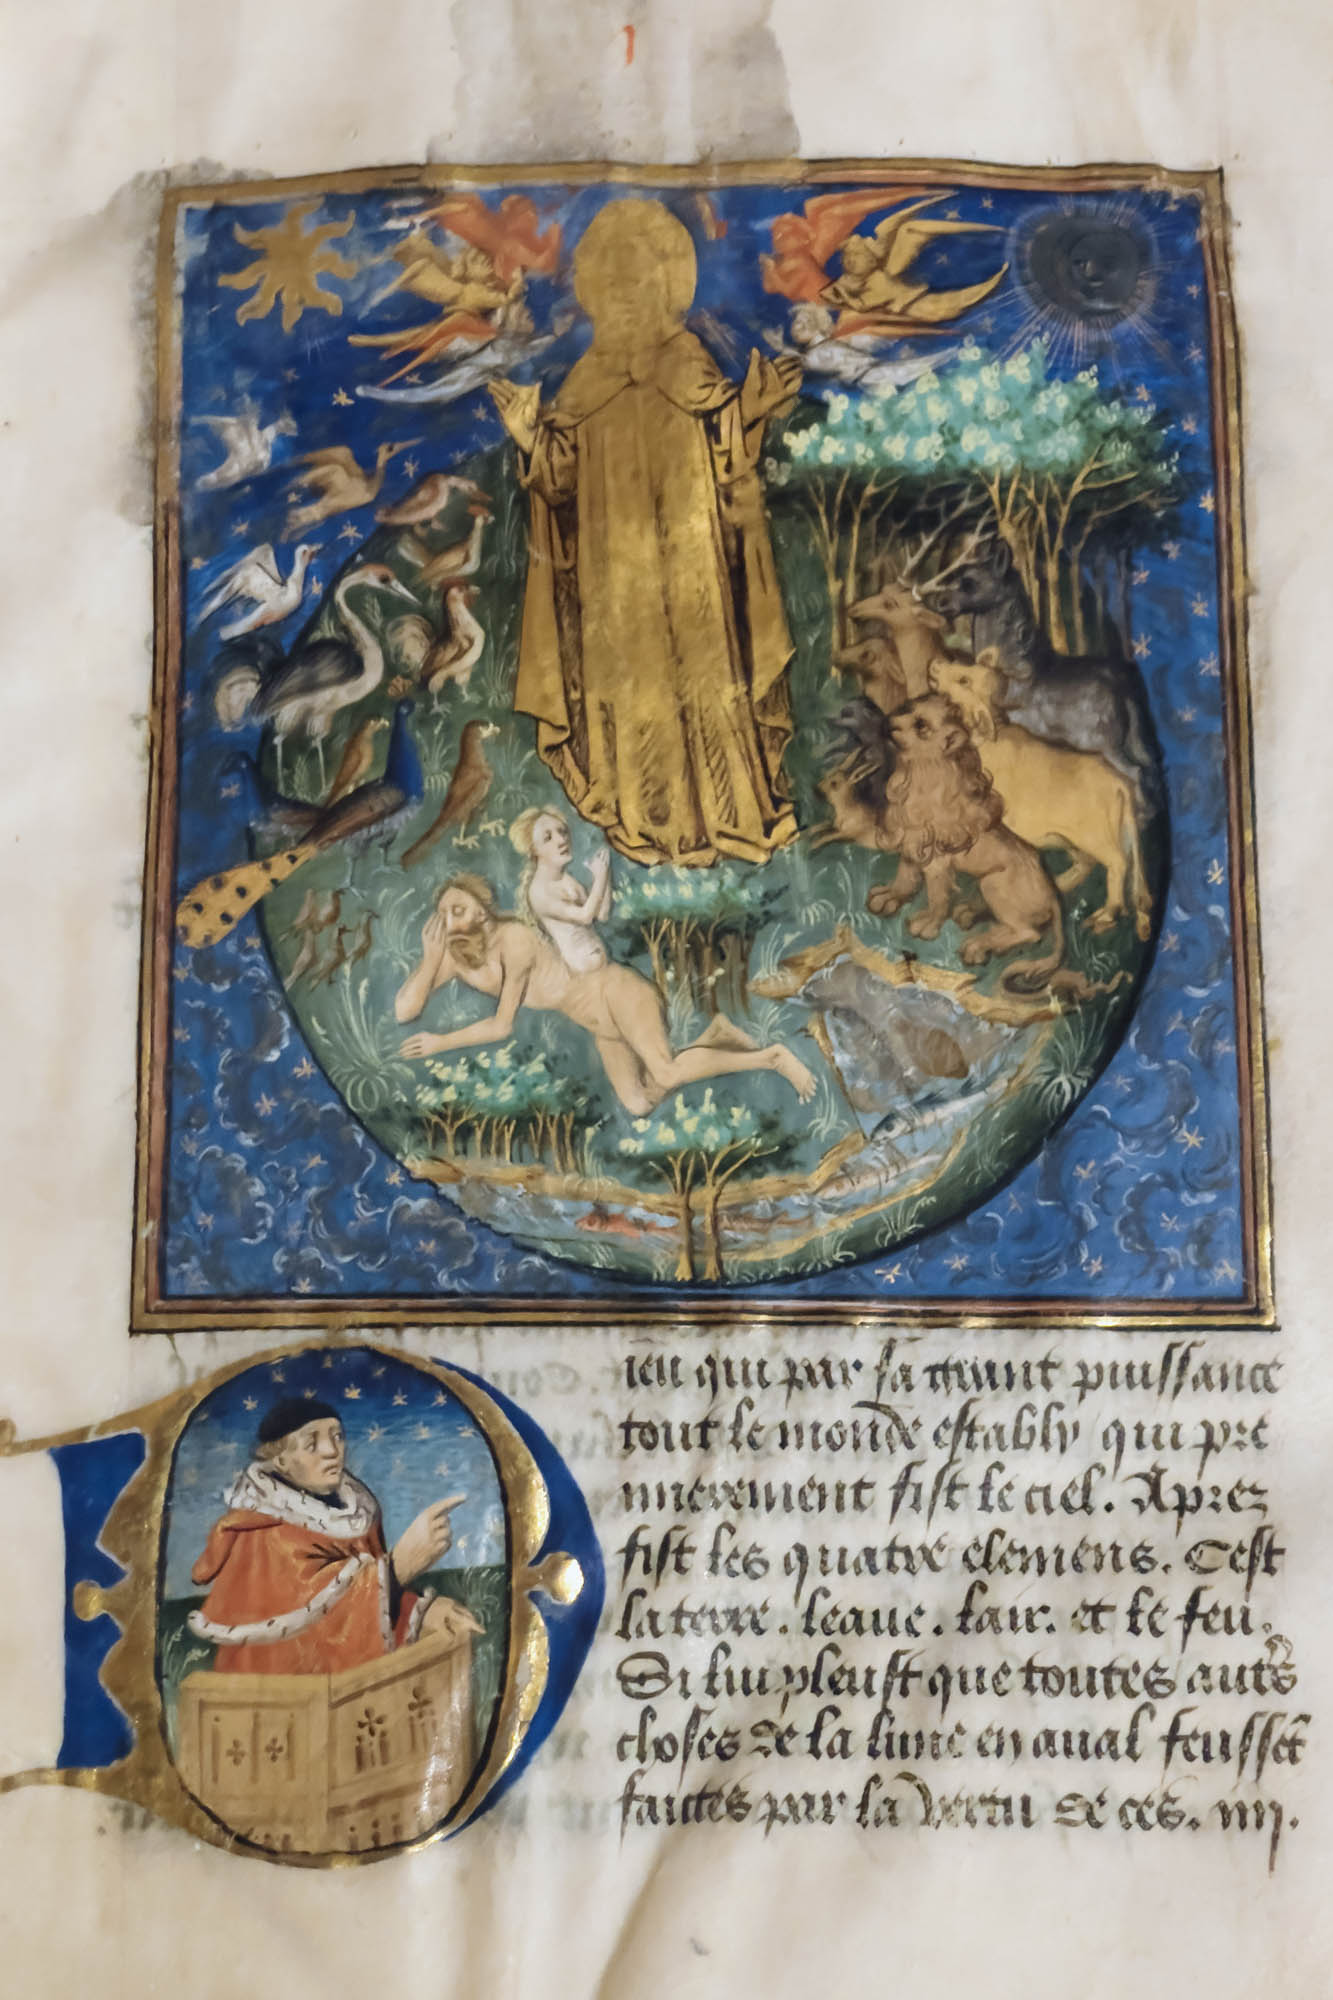 1
Dieu qui par sa grant puissance
tout le monde establÿ qui pre
mierement fist le ciel. Aprez
fist les quatre elemens. Cest
la terre. leaue. lair. et le feu.
Si lui pleust que toutes autr̃s
choses de la lune en aual feussẽt
faictes par la vertu de ces. iiij.